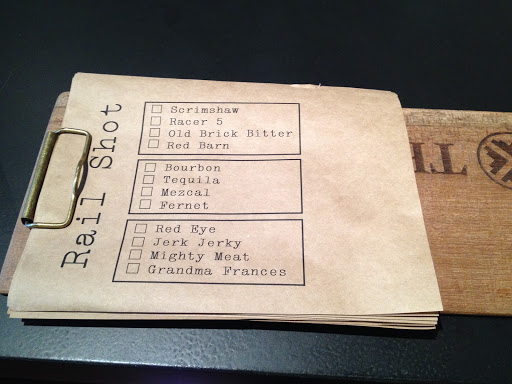 Rail Shot
Scrimshaw
Racer 5
Old Brick Bitter
Red Barn
Bourbon
Tequila
Mezcal
Fernet
Red Eye
Jerk Jerky
Mighty Meat
Grandma Frances